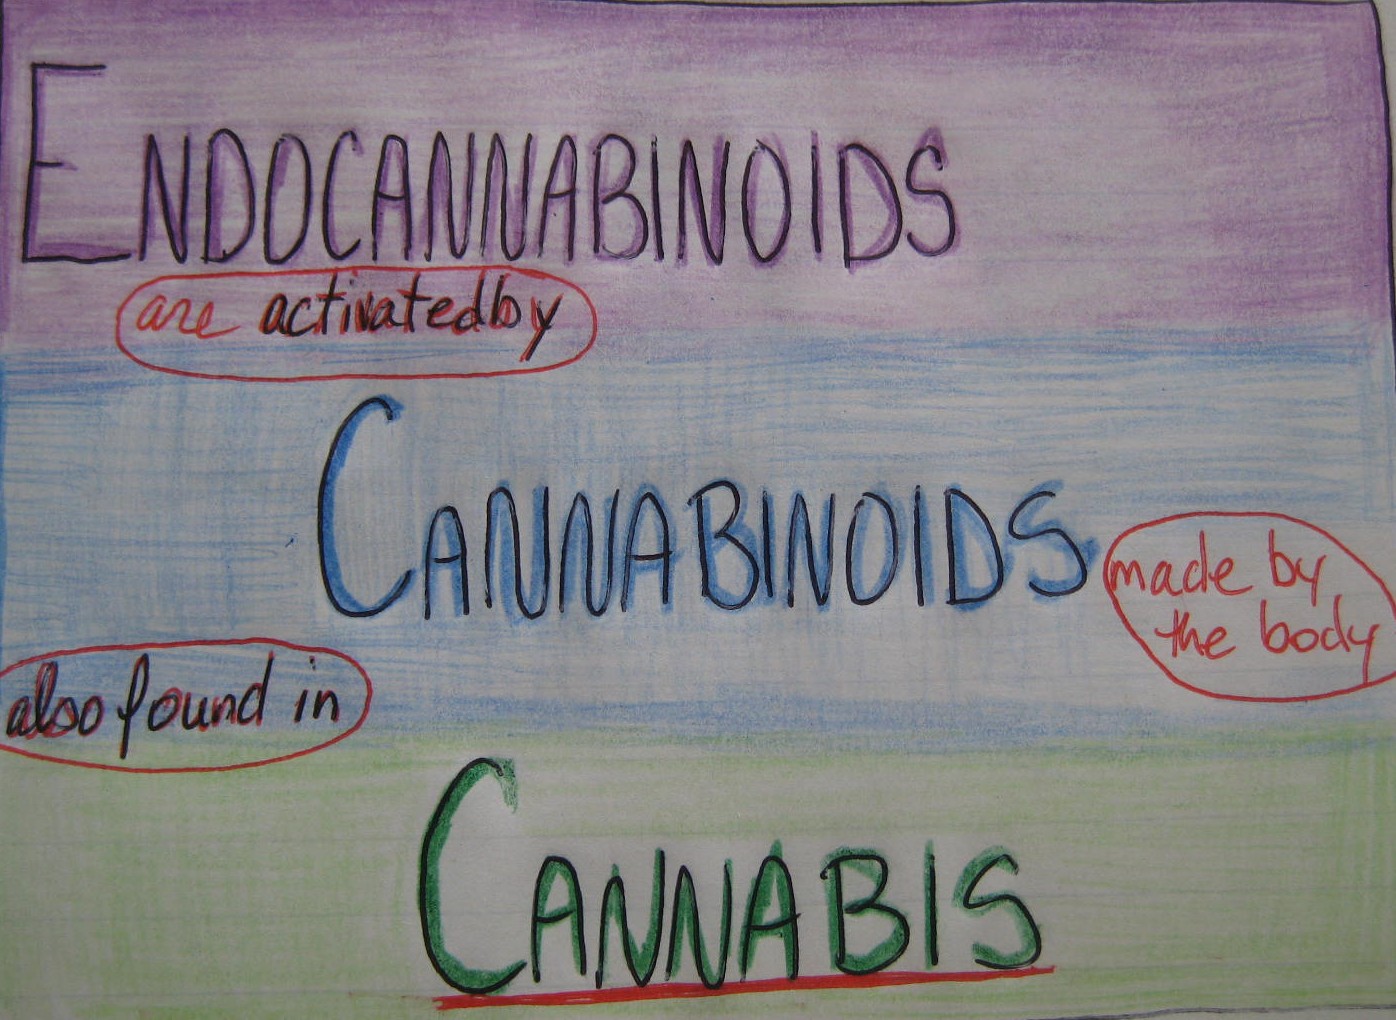 ENDOCANNABINOIDS
are activated by
CANNABINOIDS
made by
the body
also found in
CANNABIS